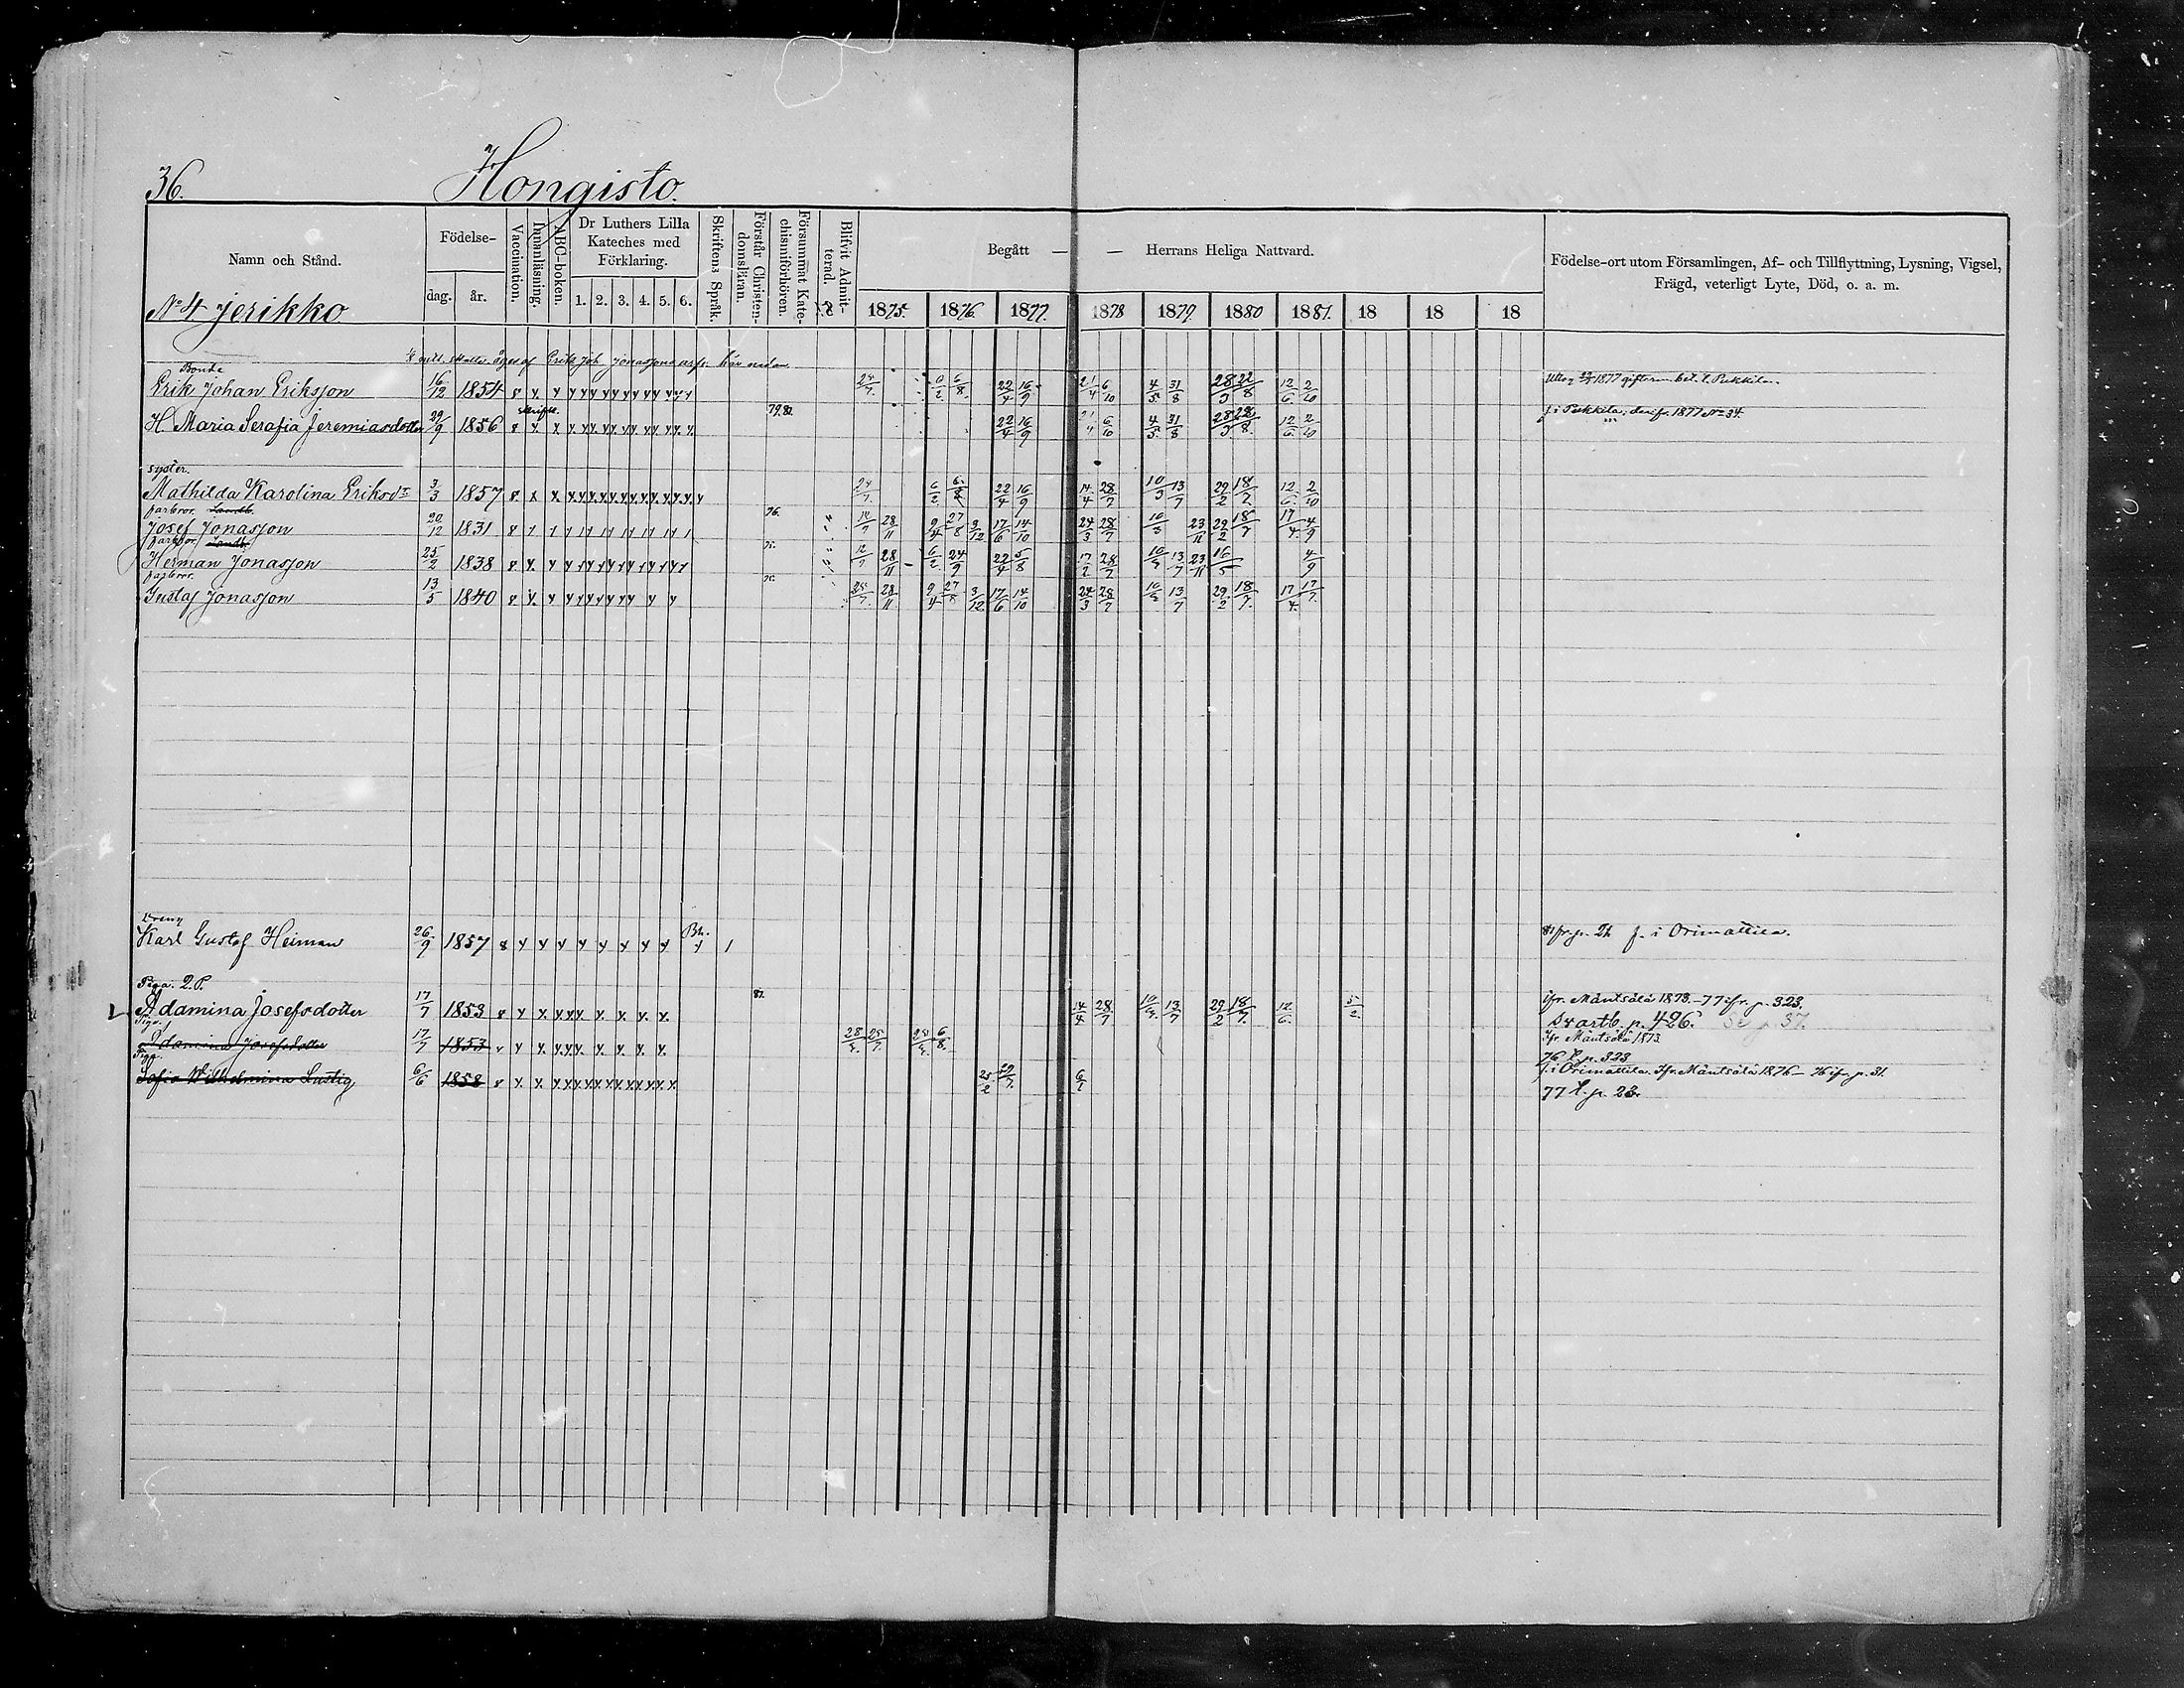 36.
Hongisto.
Namn och Stånd.
Födelse-
dag.
år.
Vaccination.
Innanläsning.
ABC-boken.
Dr Luthers Lilla
Kateches med
Förklaring.
1. 2. 3. 4. 5. 6.
Skriftens Språk.
Förstår Christen-
domsläran.
Försummat Kate-
chismiförhören.
Blifvit Admit-
terad.
Begått — — Herrans Heliga Nattvard.
1875. 1876. 1877. 1878 1879. 1880 1881. 18 18 18
Födelse-ort utom Församlingen, Af- och Tillflyttning, Lysning, Vigsel,
Frägd, veterligt Lyte, Död, o. a. m.
No 4 Jerikko
äges af Erik Joh Jonassons här nedan
Bonde
Erik Johan Eriksson 16/12 1854 22/4 16/9 4/5 31/8 28/3 22/8 12/6 2/10 1877 t. Pukkila.
skrifk.
H. Maria Serafia Jeremiasdotter 29/9 1856 79.81. 22/4 16/9 4/5 31/8 28/3 22/8 12/6 2/10 f. i Pukkila; 1877 No 34
syster.
Mathilda Karolina Eriksdr 3/3 1857 24/7 6/2 6/8 22/4 16/9 14/4 28/7 10/3 13/7 29/2 18/7 12/6 2/10
farbror. Landb.
Josef Jonasson 20/12 1831 76. 12/9 28/11 9/4 27/8 3/12 17/6 14/10 24/3 28/7 10/3 23/11 29/2 18/7 17/4 4/9
farbror. Landb.
Herman Jonasson 25/2 1838 75. 12/9 28/11 6/2 24/9 22/4 5/8 17/2 28/7 10/3 13/7 23/11 16/5 4/9
farbror.
Gustaf Jonasson 13/5 1840 25/7 28/11 9/4 27/8 3/12 17/6 14/10 24/3 28/7 10/3 13/7 29/2 18/7 17/4 17/7
Dreng
Karl Gustaf Heiman 26/9 1857 Bh. f. i Orimattila.
Piga. 2. P.
Adamina Josefsdotter 17/7 1853 81. 14/4 28/7 10/3 13/7 29/2 18/7 12/6 5/2 ifr. Mäntsälä 1873.-77 ifr. p. 323.
Svartb. p. 426. Se p. 37.
Piga.
Adamina Josefsdotter 17/7 1853 25/7 6/8 ifr. Mäntsälä 1873
76 t. p. 323
Piga.
Sofia Wilhelmina Lustig 6/6 1858 25/2 6/1 f. i Orimattila. Ifr. Mäntsälä 1876 - 76 ifr. p. 31.
77 t. p. 23.